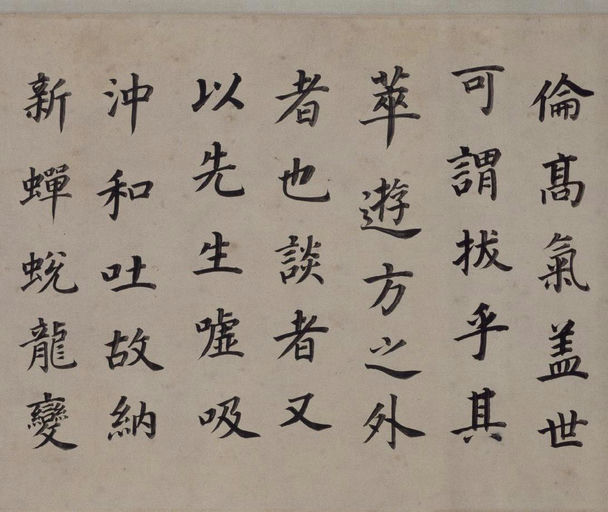 倫髙氣盖世
可謂拔乎其
萃遊方之外
者也談者又
以先生噓吸
沖和吐故納
新蟬蛻龍變